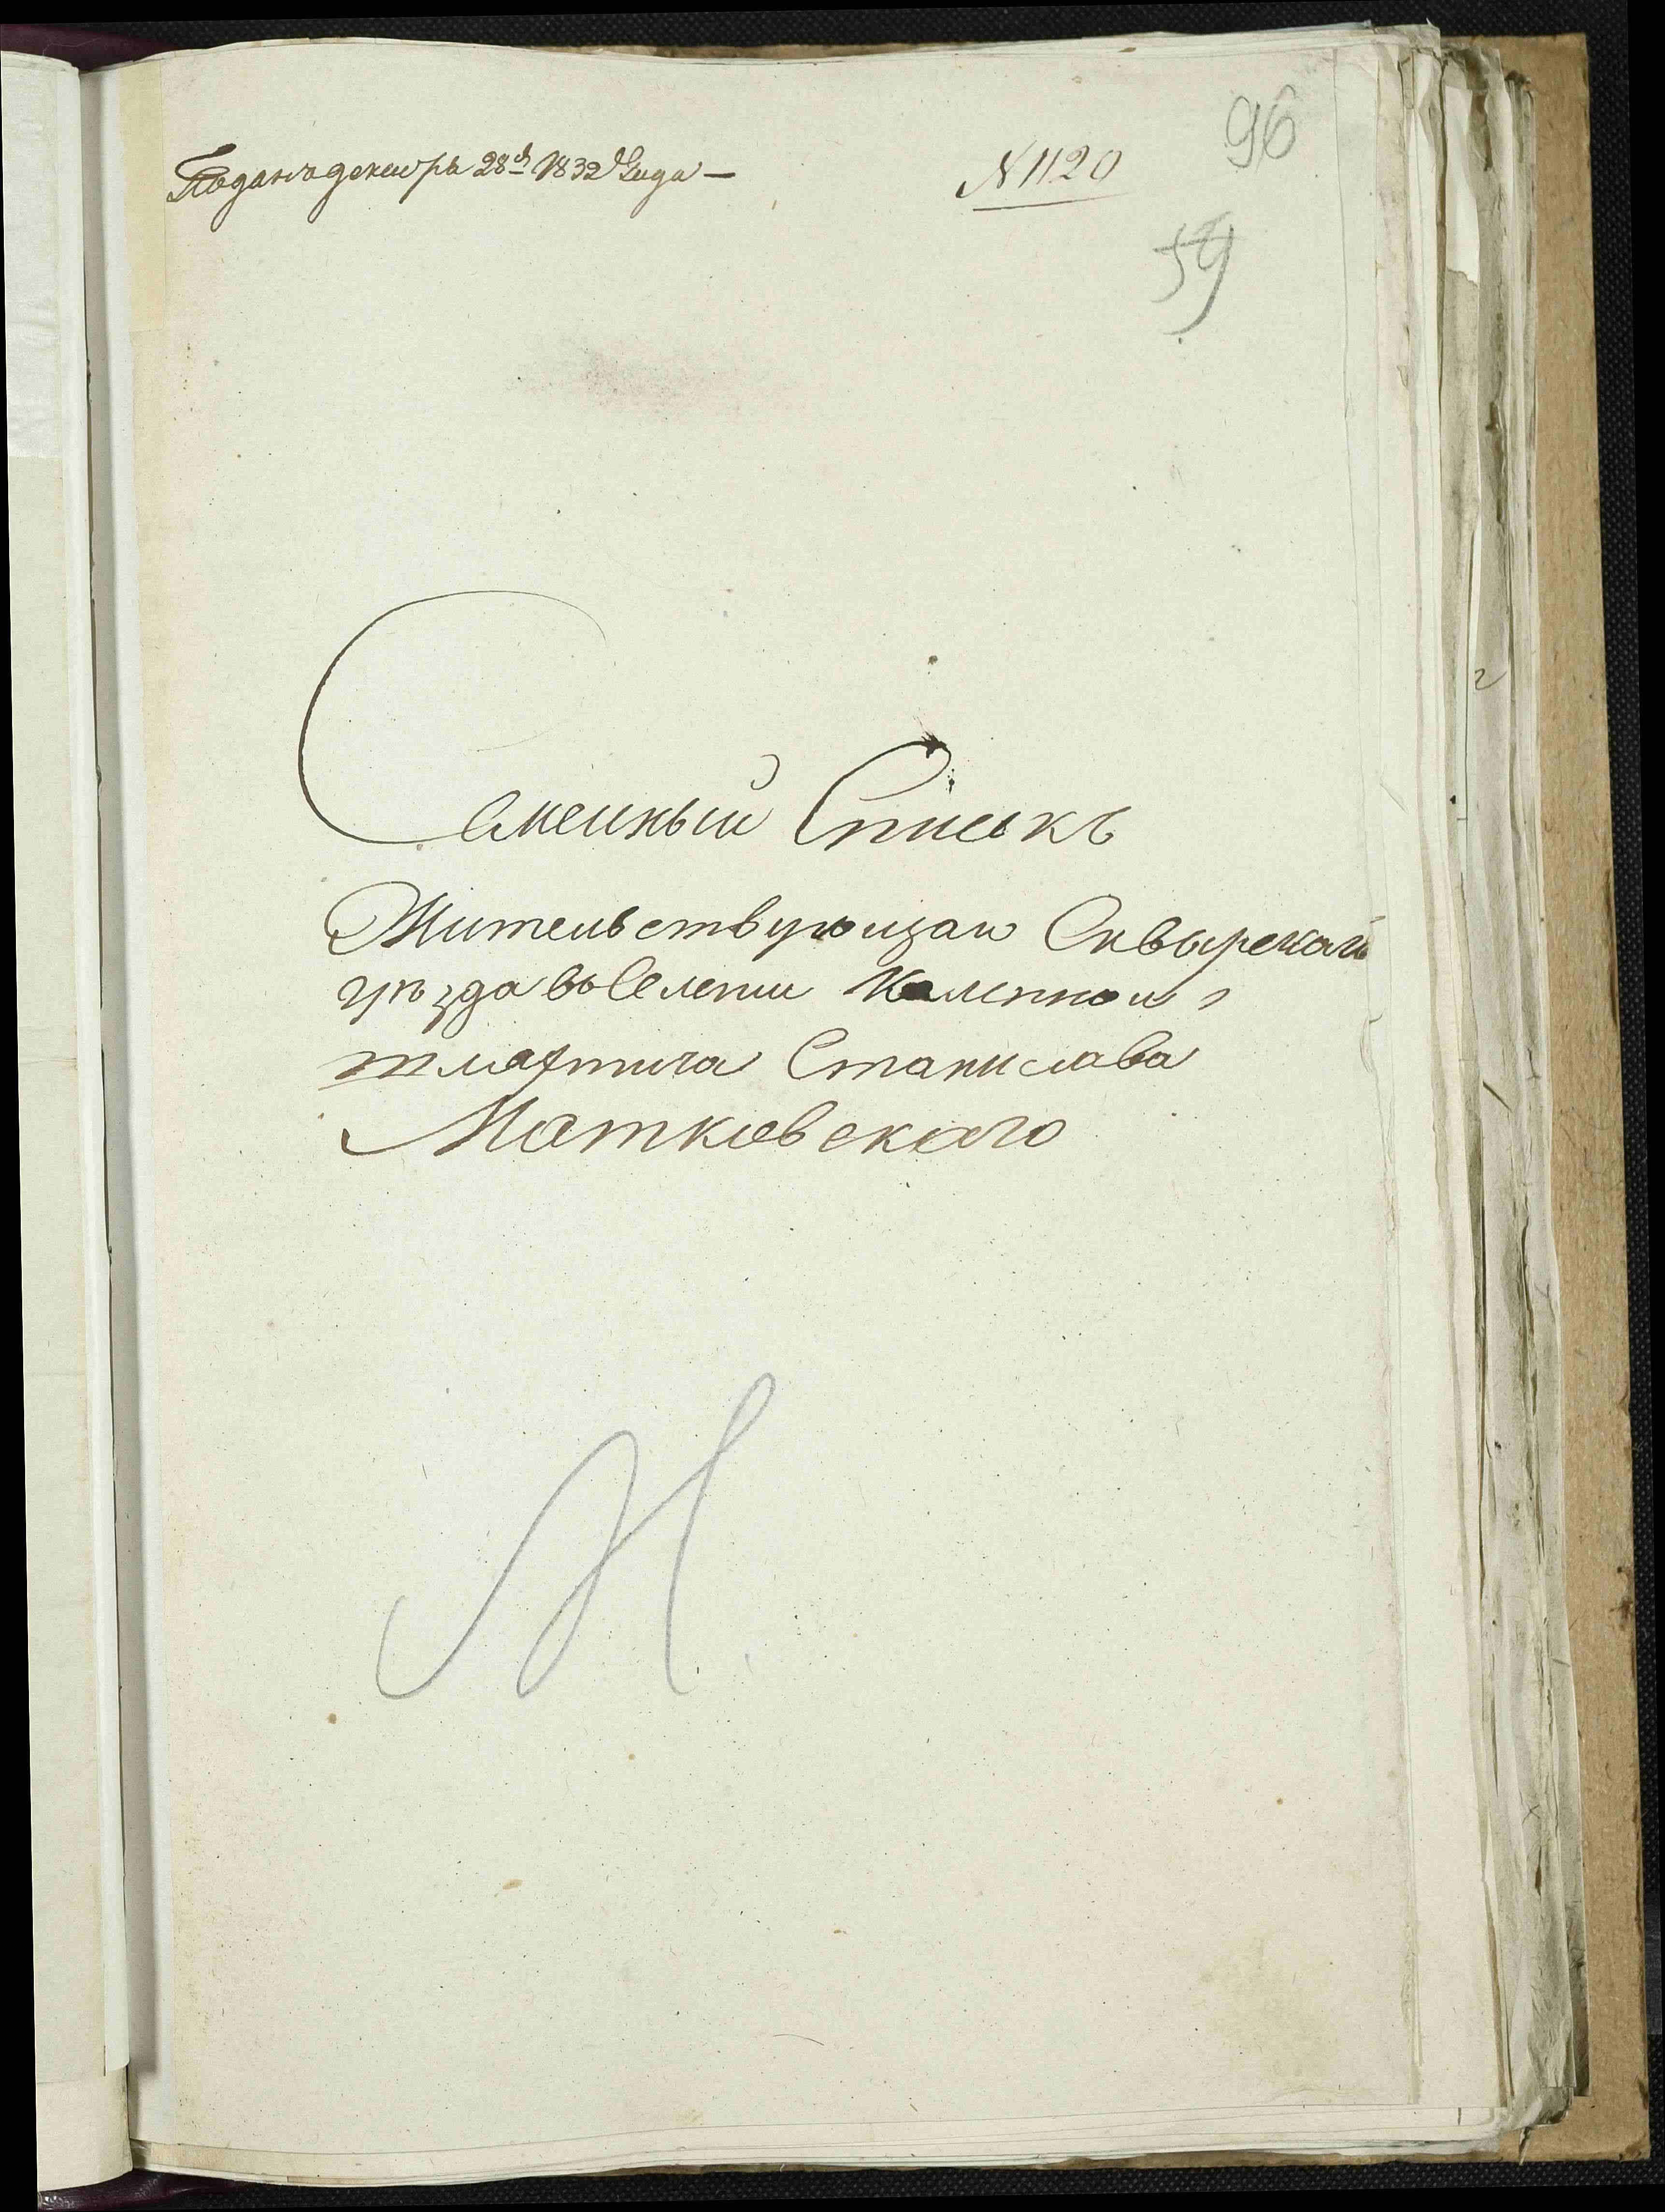 Подань декабря 28д 1832 Года —
N 1120
96
59
Семейный Списокъ
Жительствующаго Сквырскаго
уезда въ Селении Каленной
шляхтича Станислава
Матковскаго
М.